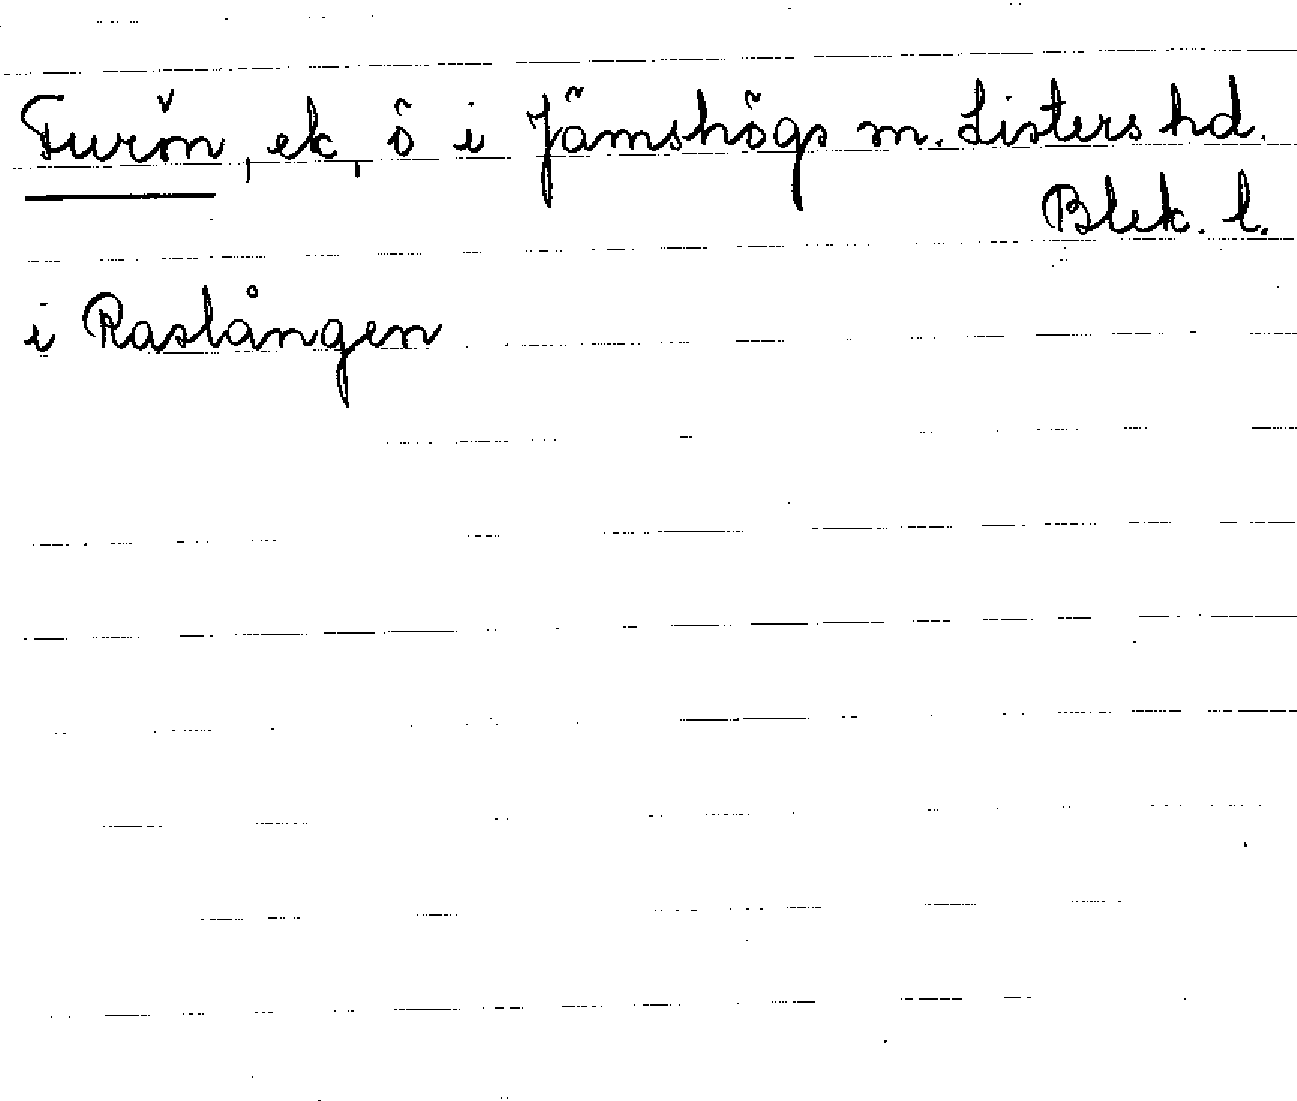 Furön, ek, ö i Jämshögs sn. Listers hd.
Blek. l.
i Raslången